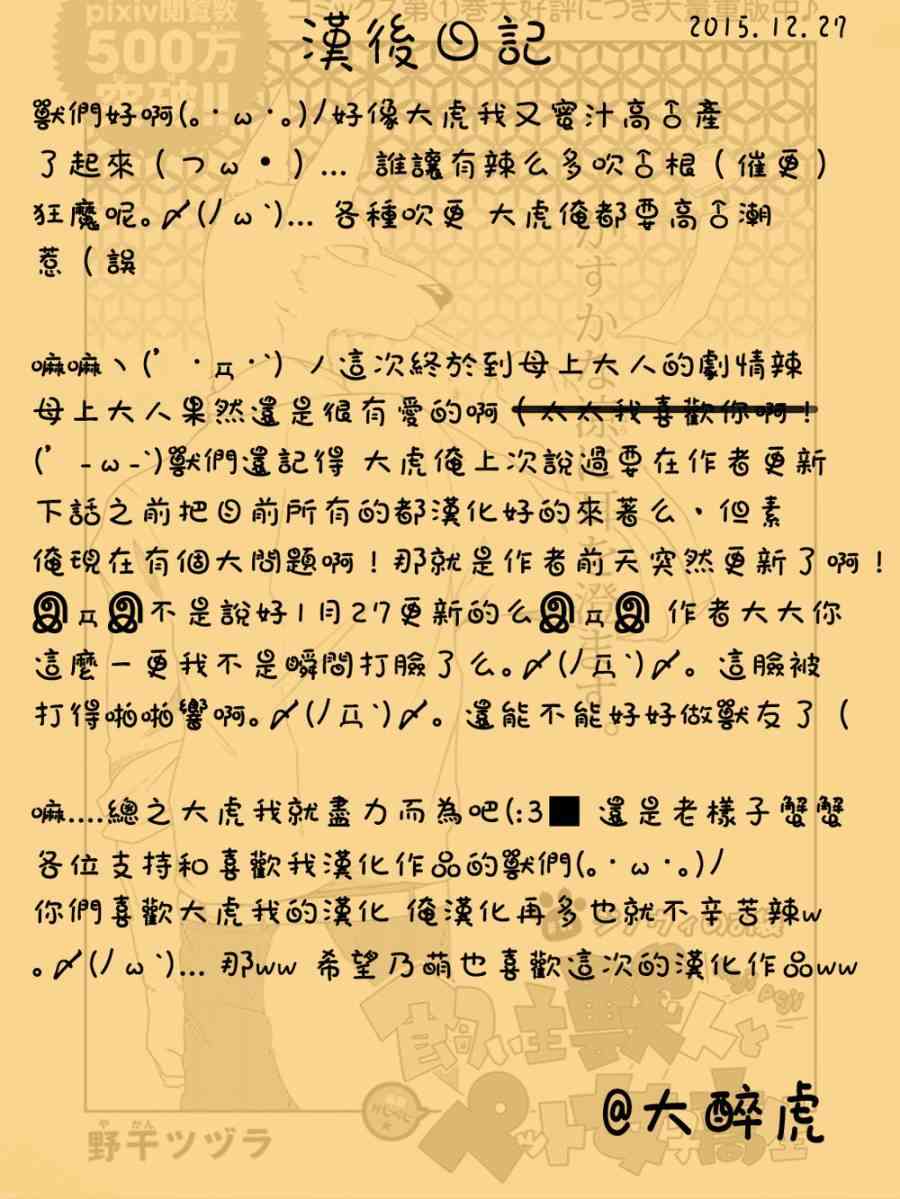 pixiv閲覧数
500万
突破!!
コミックス第①巻大好評につき大量重版中♪
漢後日記
2015.12.27
獸們好啊(｡･ω･｡)ﾉ好像大虎我又蜜汁高♂產
了起來（つω•）… 誰讓有辣么多吹♂根（催更）
狂魔呢｡〆(ﾉω`)… 各種吹更 大虎俺都要高♂潮
惹（誤
嘛嘛ヽ(′･д･`)ﾉ這次終於到母上大人的劇情辣
母上大人果然還是很有愛的啊（太太我喜歡你啊！
(′-ω-`)獸們還記得 大虎俺上次說過要在作者更新
下話之前把目前所有的都漢化好的來著么，但素
俺現在有個大問題啊！那就是作者前天突然更新了啊！
இдஇ不是說好1月27更新的么இдஇ 作者大大你
這麼一更我不是瞬間打臉了么｡〆(ﾉД`)〆｡ 這臉被
打得啪啪響啊｡〆(ﾉД`)〆｡ 還能不能好好做獸友了（
嘛....總之大虎我就盡力而為吧(:3■ 還是老樣子蟹蟹
各位支持和喜歡我漢化作品的獸們(｡･ω･｡)ﾉ
你們喜歡大虎我的漢化 俺漢化再多也就不辛苦辣w
｡〆(ﾉω`)… 那ww 希望乃萌也喜歡這次的漢化作品ww
飼い主獣人と
ペット女子高生
野干ツヅラ
@大醉虎